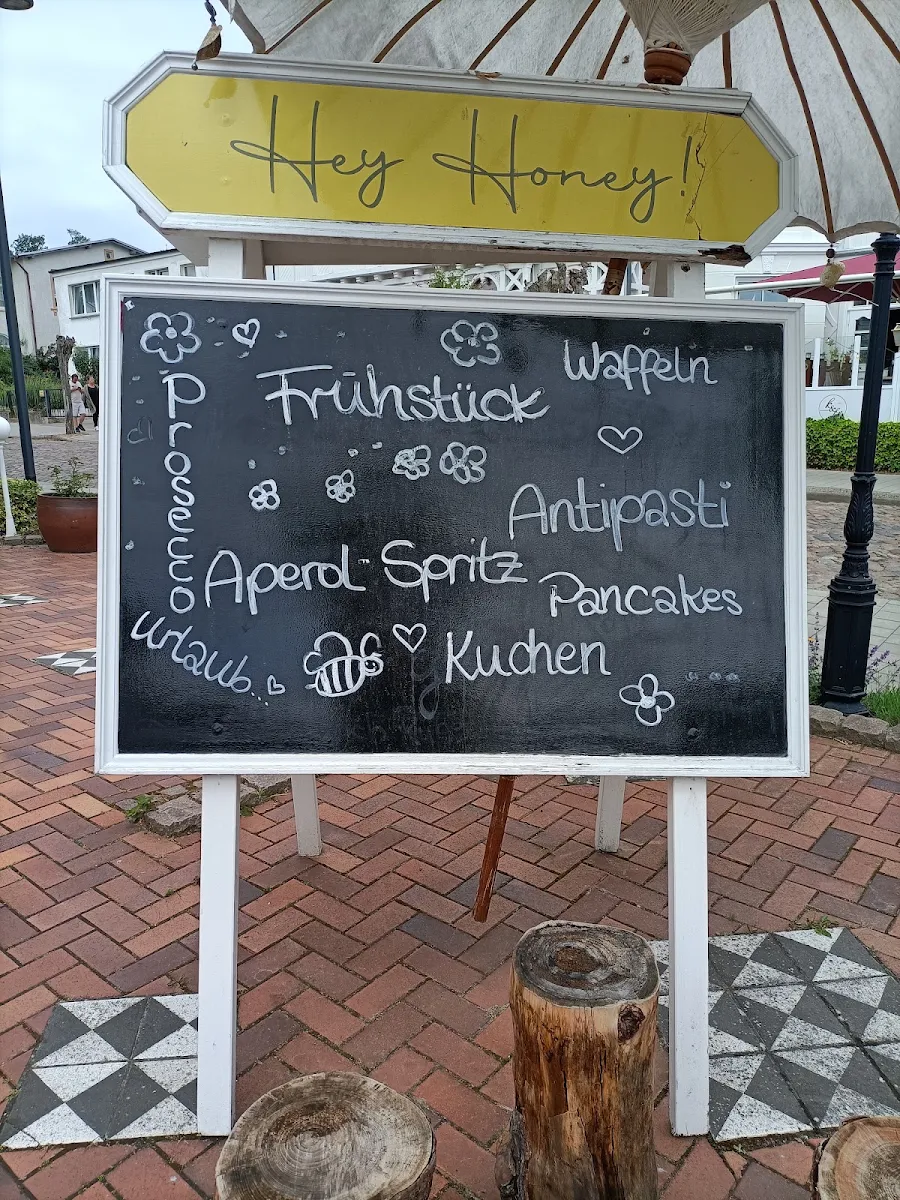 Hey Honey!
Waffeln
Frühstück
Prosecco
Antipasti
Aperol-Spritz
Pancakes
Kuchen
Urlaub...